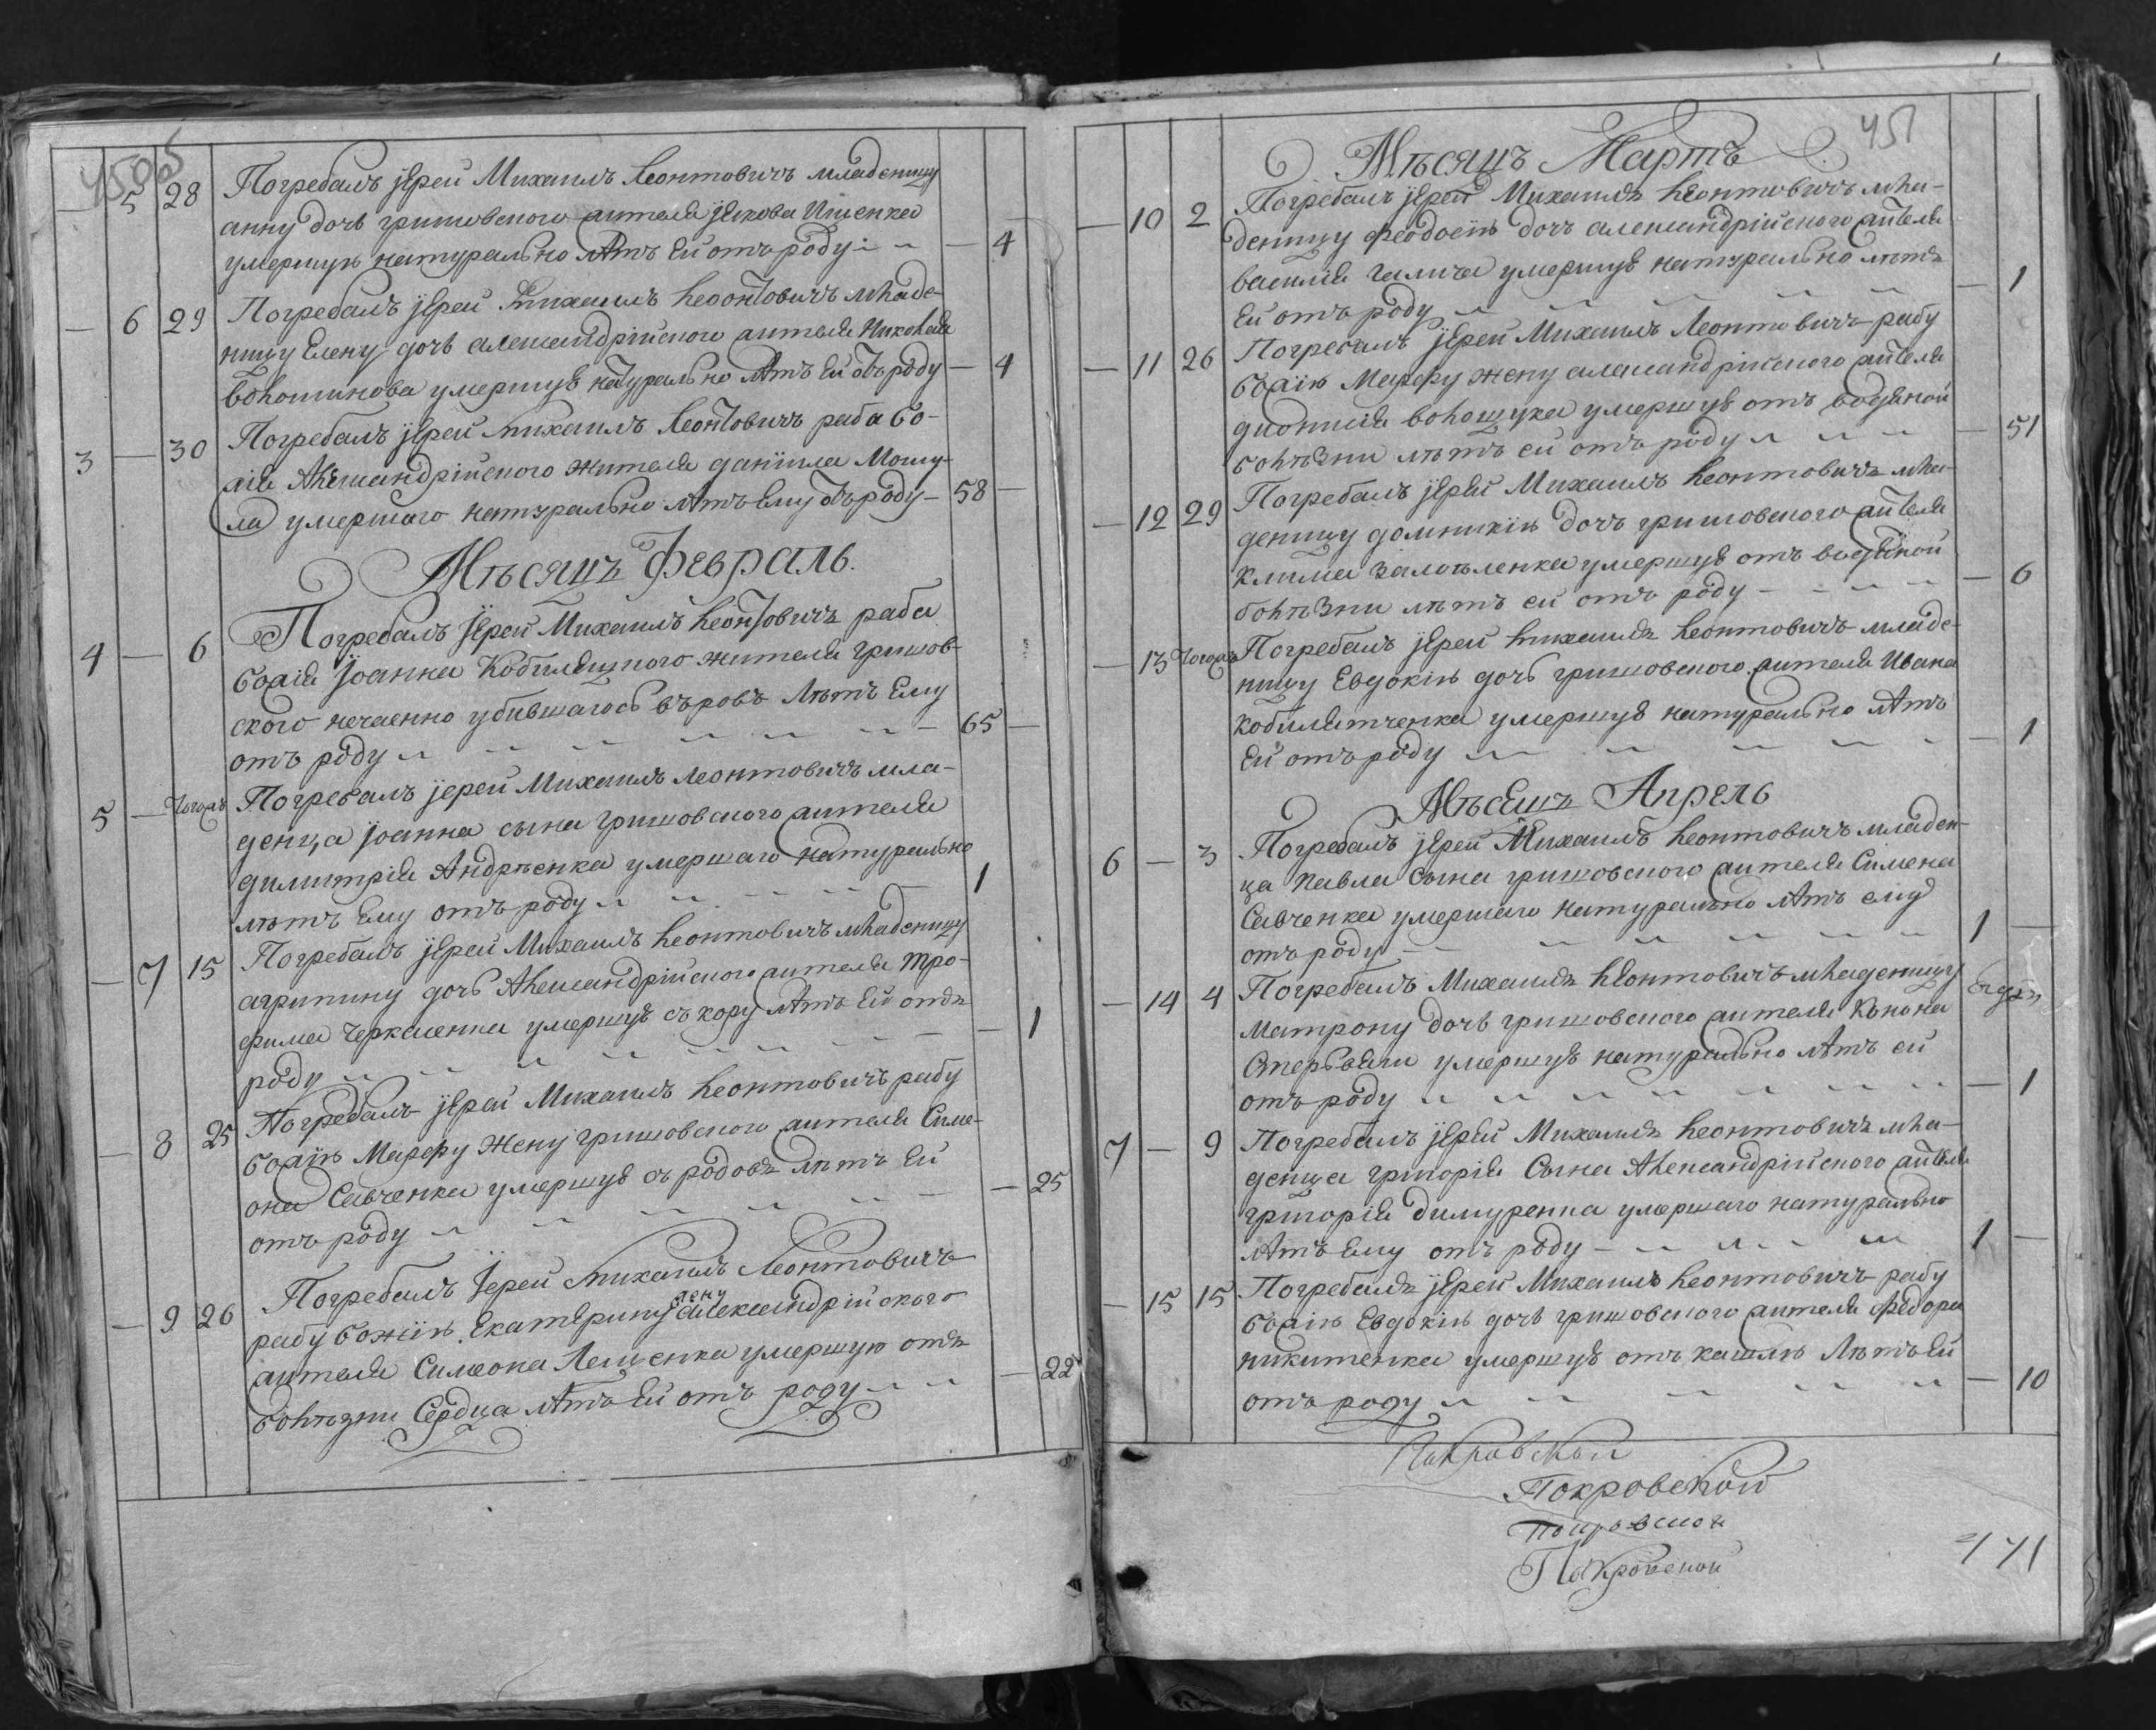 5 28 Погребалъ іерей Михаилъ Леонтовичъ младеницу
анну дочь гришовского жителя якова Ищенка
умершую натурально лѣтъ Ей отъ роду — 4
— 6 29 Погребалъ іерей Михаилъ Леонтовичъ младе-
ницу Елену дочь александрійского жителя Николая
Волошинова умершую натурально лѣтъ Ей отъ роду — 4
3 — 30 Погребалъ іерей Михаилъ Леонтовичъ раба бо-
жія Александрійского жителя даніила
умершаго натурально лѣтъ Ему отъ роду — 58 —
Мѣсяцъ Февраль.
4 — 6 Погребалъ іерей Михаилъ Леонтовичъ раба
божія Іоанна жителя гришов-
ского нечаенно убившагось въ ровъ лѣтъ Ему
отъ роду — 65 —
5 — Тогожъ Погребалъ іерей Михаилъ Леонтовичъ мла-
денца Іоанна сына гришовского жителя
димитрія Андрѣенка умершаго натурально
лѣтъ Ему отъ роду 1
— 7 15 Погребалъ іерей Михаилъ Леонтовичъ младеницу
агрипину дочь Александрійского жителя тро-
фима Черкашенка умершую съ кору лѣтъ Ей отъ
роду — 1
— 8 25 Погребалъ іерей Михаилъ Леонтовичъ рабу
божію Марфу жену гришовского жителя Симе-
она Савченка умершую съ родовъ лѣтъ Ей
отъ роду — 25
— 9 26 Погребалъ іерей Михаилъ Леонтовичъ
рабу божію Екатерину жену александрійского
жителя Симеона Лещенка умершую отъ
болѣзни Сердца лѣтъ Ей отъ роду — 22
451
Мѣсяцъ Мартъ
— 10 2 Погребалъ іерей Михаилъ Леонтовичъ мла-
деницу феодосію дочь александрійского жителя
василія Галича умершую натурально лѣтъ
Ей отъ роду — 1
— 11 26 Погребалъ іерей Михаилъ Леонтовичъ рабу
божію Марфу жену александрійского жителя
діонисія волощука умершую отъ водяной
болѣзни лѣтъ ей отъ роду — 51
— 12 29 Погребалъ іерей Михаилъ Леонтовичъ мла-
деницу домникію дочь гришовского жителя
Клима умершую отъ водяной
болѣзни лѣтъ ей отъ роду — 6
— 13 Тогожъ Погребалъ іерей Михаилъ Леонтовичъ младе-
ницу Евдокію дочь гришовского жителя Ивана
Кобилятченка умершую натурально лѣтъ
Ей отъ роду — 1
Мѣсяцъ Апрель
6 — 3 Погребалъ іерей Михаилъ Леонтовичъ младен-
ца павла сына гришовского жителя Симеона
Савченка умершаго натурально лѣтъ ему
отъ роду 1 —
— 14 4 Погребалъ Михаилъ Леонтовичъ младеницу
матрону дочь гришовского жителя Конона
умершую натурально лѣтъ ей
отъ роду — 1
7 — 9 Погребалъ іерей Михаилъ Леонтовичъ мла-
денца григорія сына Александрійского жителя
григорія димуренка умершаго натурально
лѣтъ Ему отъ роду 1 —
— 15 15 Погребалъ іерей Михаилъ Леонтовичъ рабу
божію Евдокію дочь гришовского жителя федора
никитенка умершую отъ кашлю лѣтъ Ей
отъ роду — 10
Покровской
Покровской
Покровской
Покровской